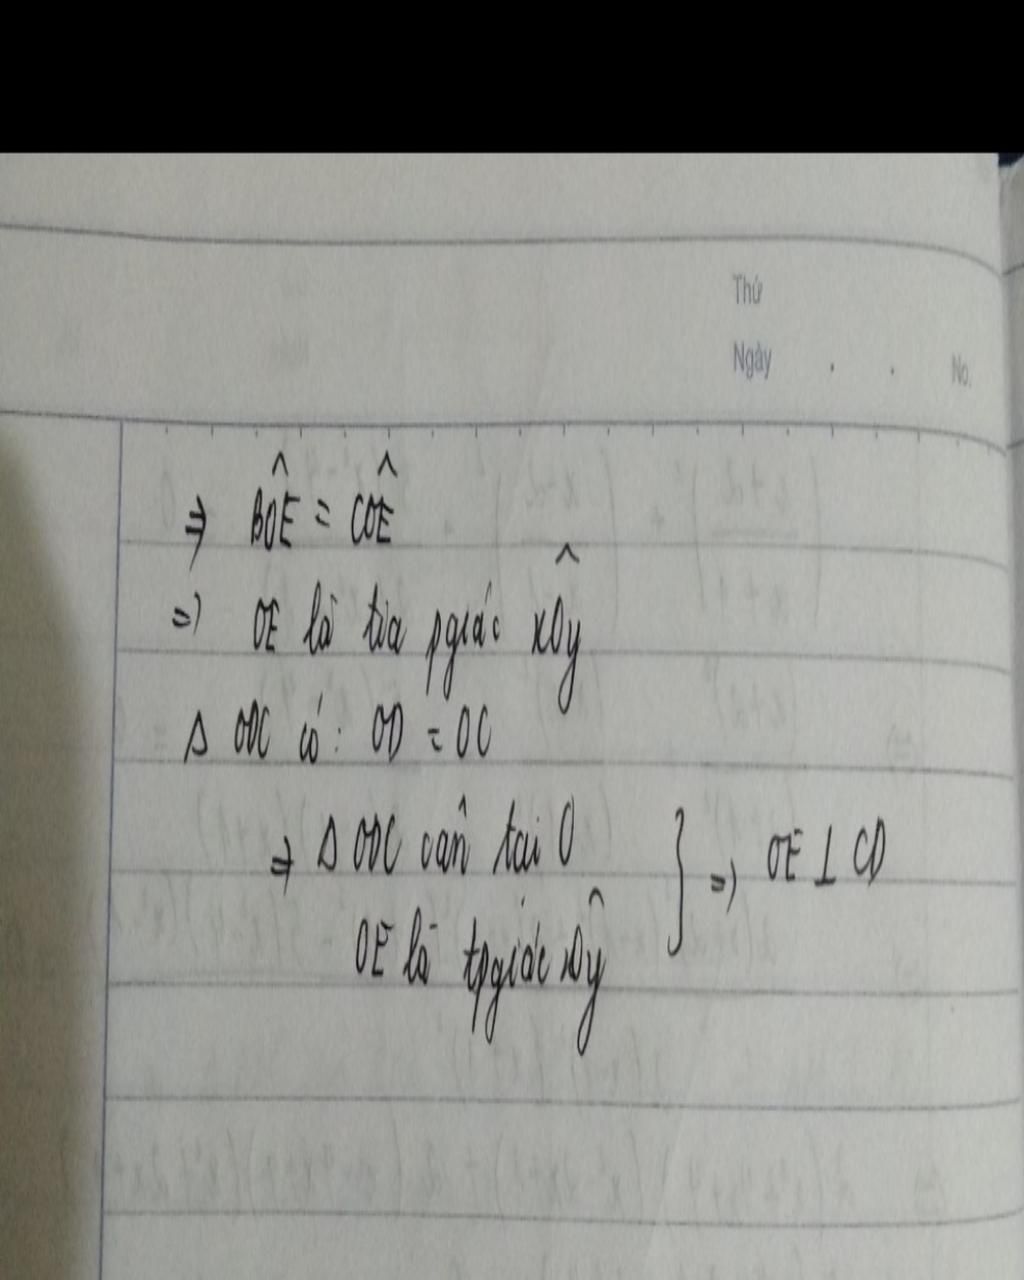 Thứ
Ngày . . No.
⇒ BÔE = CÔE
⇒ OE là tia pgiác xÔy
Δ ODC có: OD = OC
⇒ Δ ODC cân tại O
OE là tpgiác xÔy
} ⇒ OE ⊥ CD